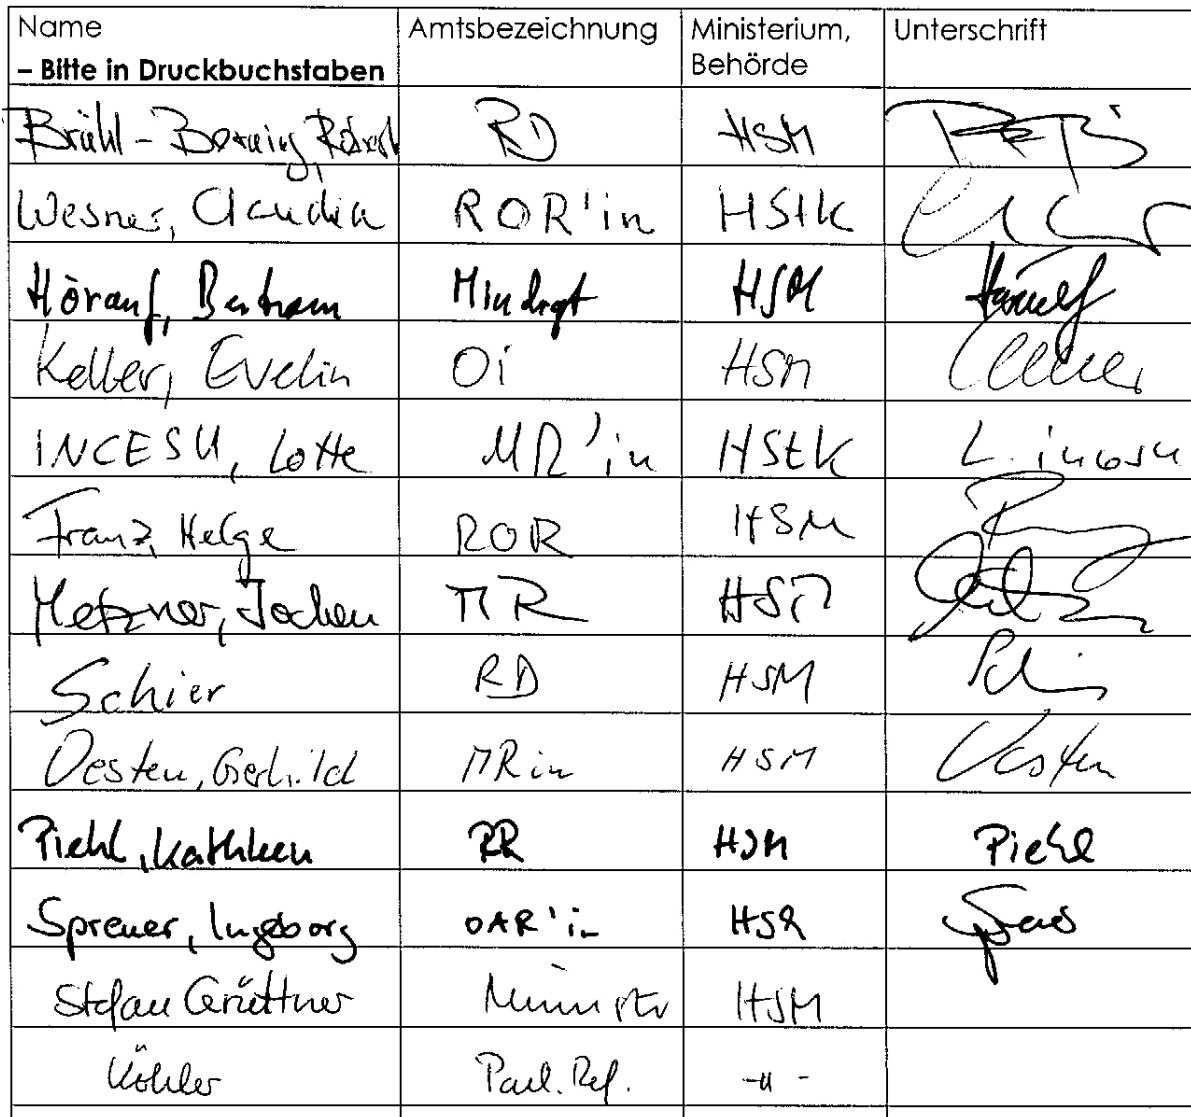 Name Amtsbezeichnung Ministerium, Unterschrift
– Bitte in Druckbuchstaben Behörde
Brühl - RD HSM
Wesner, Claudia ROR'in HStK
Hörauf, Bertram Mindrgt HSM Hörauf
Keller, Evelin Oi HSM
INCESU, Lotte MR'in HStK L. incesu
Franz, Helge ROR HSM
Metzner, Jochen MR HSM
Schier RD HSM
Oesten, Gerhild MRin HSM Oesten
Piehl, Kathleen RR HSM Piehl
Spreuer, Ingeborg OAR'in HSM
Stefan Grüttner Minister HSM
Köhler Parl. Ref. -"-